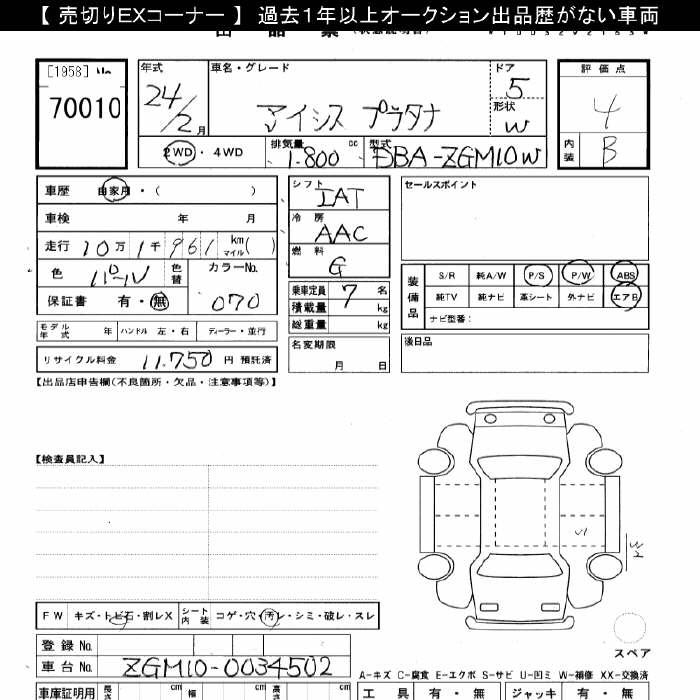 【 売切りEXコーナー 】 過去1年以上オークション出品歴がない車両
[1958] No
70010
年式
24/2月
車名・グレード
アイシス プラタナ
ドア
5
形状
W
評価点
4
内装
B
2WD・4WD
排気量
1.800 cc
型式
DBA-ZGM10W
車歴 自家用・( )
車検 年 月
走行 10万 1千961 km マイル( )
色 パール 色替
カラーNo. 070
保証書 有・無
モデル年式 年 ハンドル 左・右 ディーラー・並行
リサイクル料金 11.750 円 預託済
シフト
IAT
冷房
AAC
燃料
G
乗車定員 7 名
積載量 kg
総重量 kg
名変期限
月 日
セールスポイント
装備品
S/R 純A/W P/S P/W ABS
純TV 純ナビ 革シート 外ナビ エアB
ナビ型番:
後日品
【出品店申告欄(不良箇所・欠品・注意事項等)】
【検査員記入】
U1
W2
スペア
FW キズ・トビ石・割レX シート内装 コゲ・穴・汚レ・シミ・破レ・スレ
登録 No.
車台 No. ZGM10-0034502
A-キズ C-腐食 E-エクボ S-サビ U-凹ミ W-補修 XX-交換済
車庫証明用 長さ cm 幅 cm 高さ cm
工具 有・無 ジャッキ 有・無